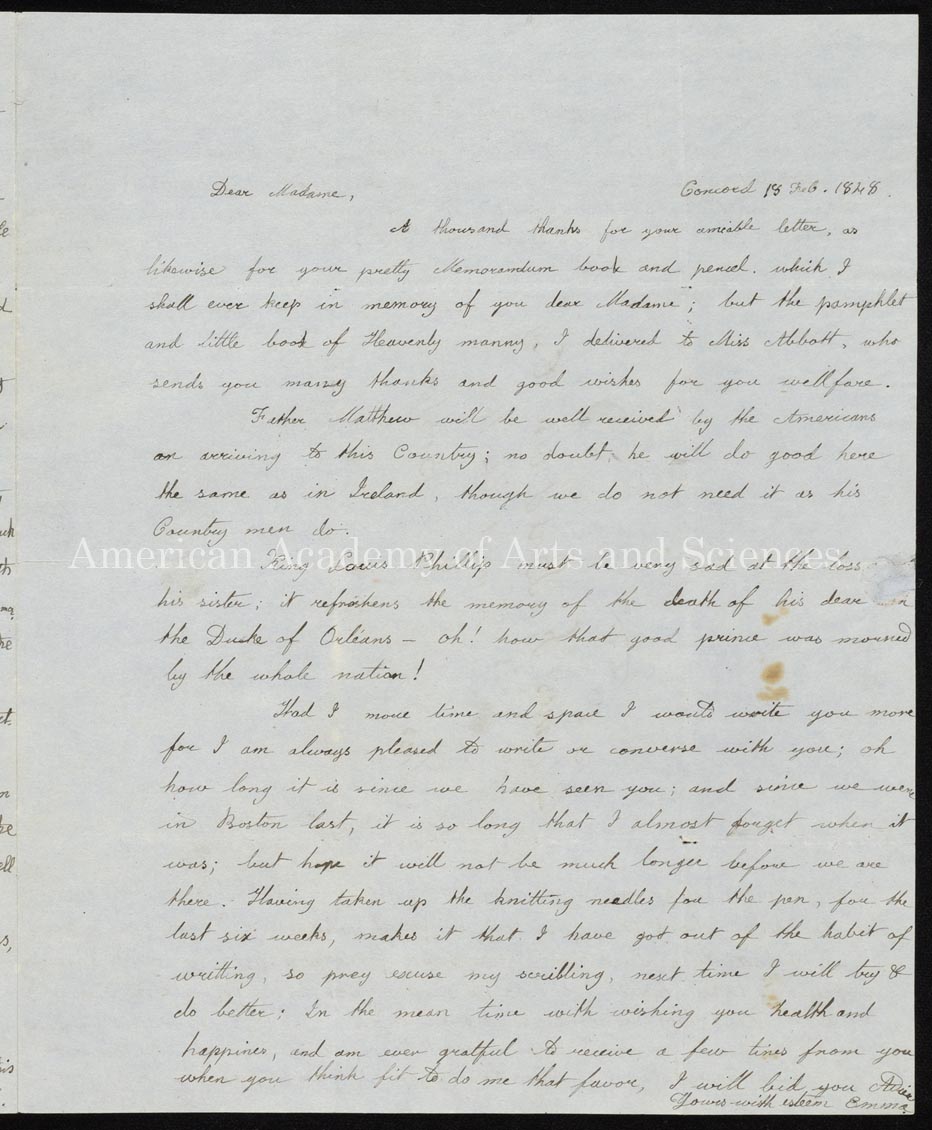 Dear Madame, Concord 13 Feb. 1848.
A thousand thanks for your amiable letter, as
likewise for your pretty Memorandum book and pencil. which I
shall ever keep in memory of you dear Madame; but the pamphlet
and little book of Heavenly manny, I delivered to Miss Abbott, who
sends you many thanks and good wishes for you wellfare.
Father Matthew will be well received by the Americans
on arriving to this Country; no doubt, he will do good here
the same as in Ireland, though we do not need it as his
Country men do.
American Academy of Arts and Sciences
King Louis Phillip must be very sad at the loss
his sister; it refreshens the memory of the death of his dear
the Duke of Orléans – oh! how that good prince was morned
by the whole nation!
Had I more time and space I would write you more
for I am always pleased to write or converse with you; oh
how long it is since we have seen you; and since we were
in Boston last, it is so long that I almost forget when it
was; but hope it will not be much longer before we are
there. Having taken up the knitting needles for the pen, for the
last six weeks, makes it that I have got out of the habit of
writting, so prey excuse my scribling, next time I will try &
do better; In the mean time with wishing you health and
happines, and am ever gratful to receive a few lines from you
when you think fit to do me that favor, I will bid you
Yours with esteem Emma.